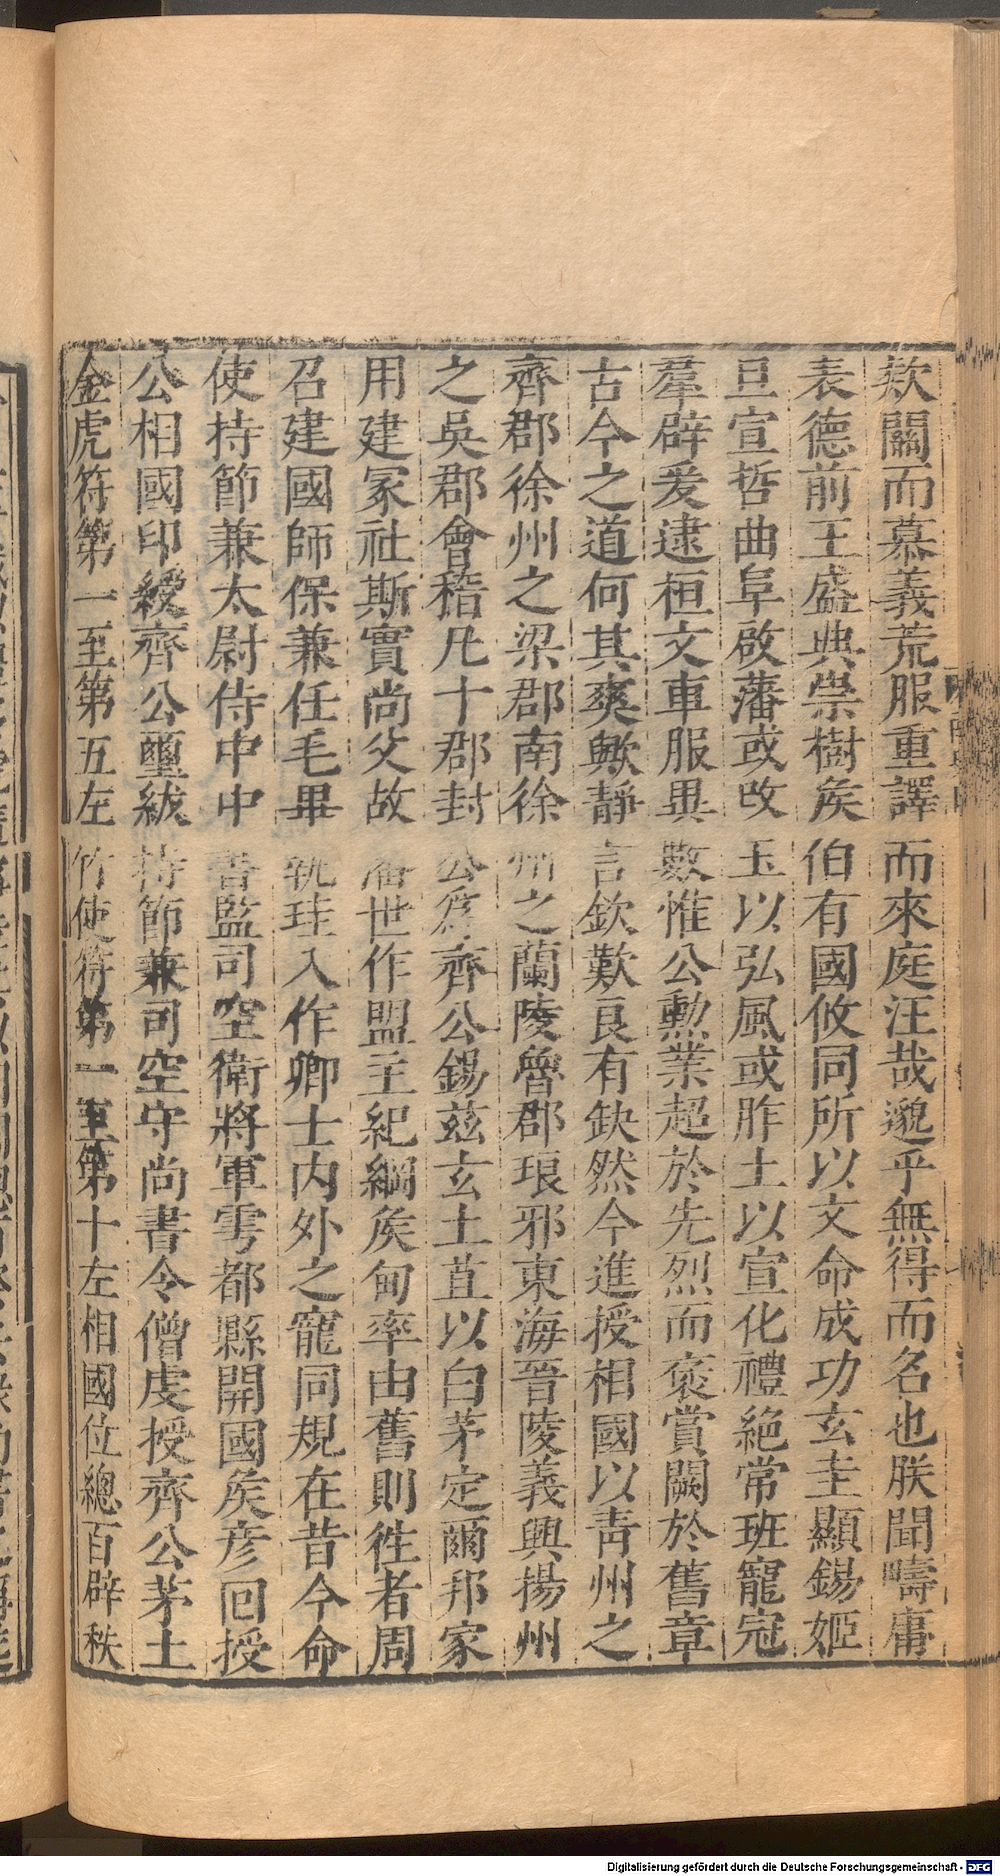 欵關而慕義荒服重譯而來庭汪哉邈乎無得而名也朕聞疇庸
表德前王盛典崇樹矦伯有國攸同所以文命成功玄圭顯錫姬
旦宣哲曲阜啟藩或改玉以弘風或胙土以宣化禮絕常班寵冠
羣辟爰逮桓文車服異數惟公勲業超於先烈而褒賞闕於舊章
古今之道何其爽歟靜言欽歎良有缺然今進授相國以青州之
齊郡徐州之梁郡南徐州之蘭陵魯郡琅邪東海晉陵義興揚州
之吳郡會稽凡十郡封公爲齊公錫玆玄土苴以白茅定爾邦家
用建冢社斯實尚父故藩世作盟主紀綱矦甸率由舊則徃者周
召建國師保兼任毛畢執珪入作卿士內外之寵同規在昔今命
使持節兼太尉侍中中書監司空衛將軍雩都縣開國矦彦回授
公相國印綬齊公璽紱持節兼司空守尚書令僧虔授齊公茅土
金虎符第一至第五左竹使符第一至第十左相國位總百辟秩
Digitalisierung gefördert durch die Deutsche Forschungsgemeinschaft - DFG